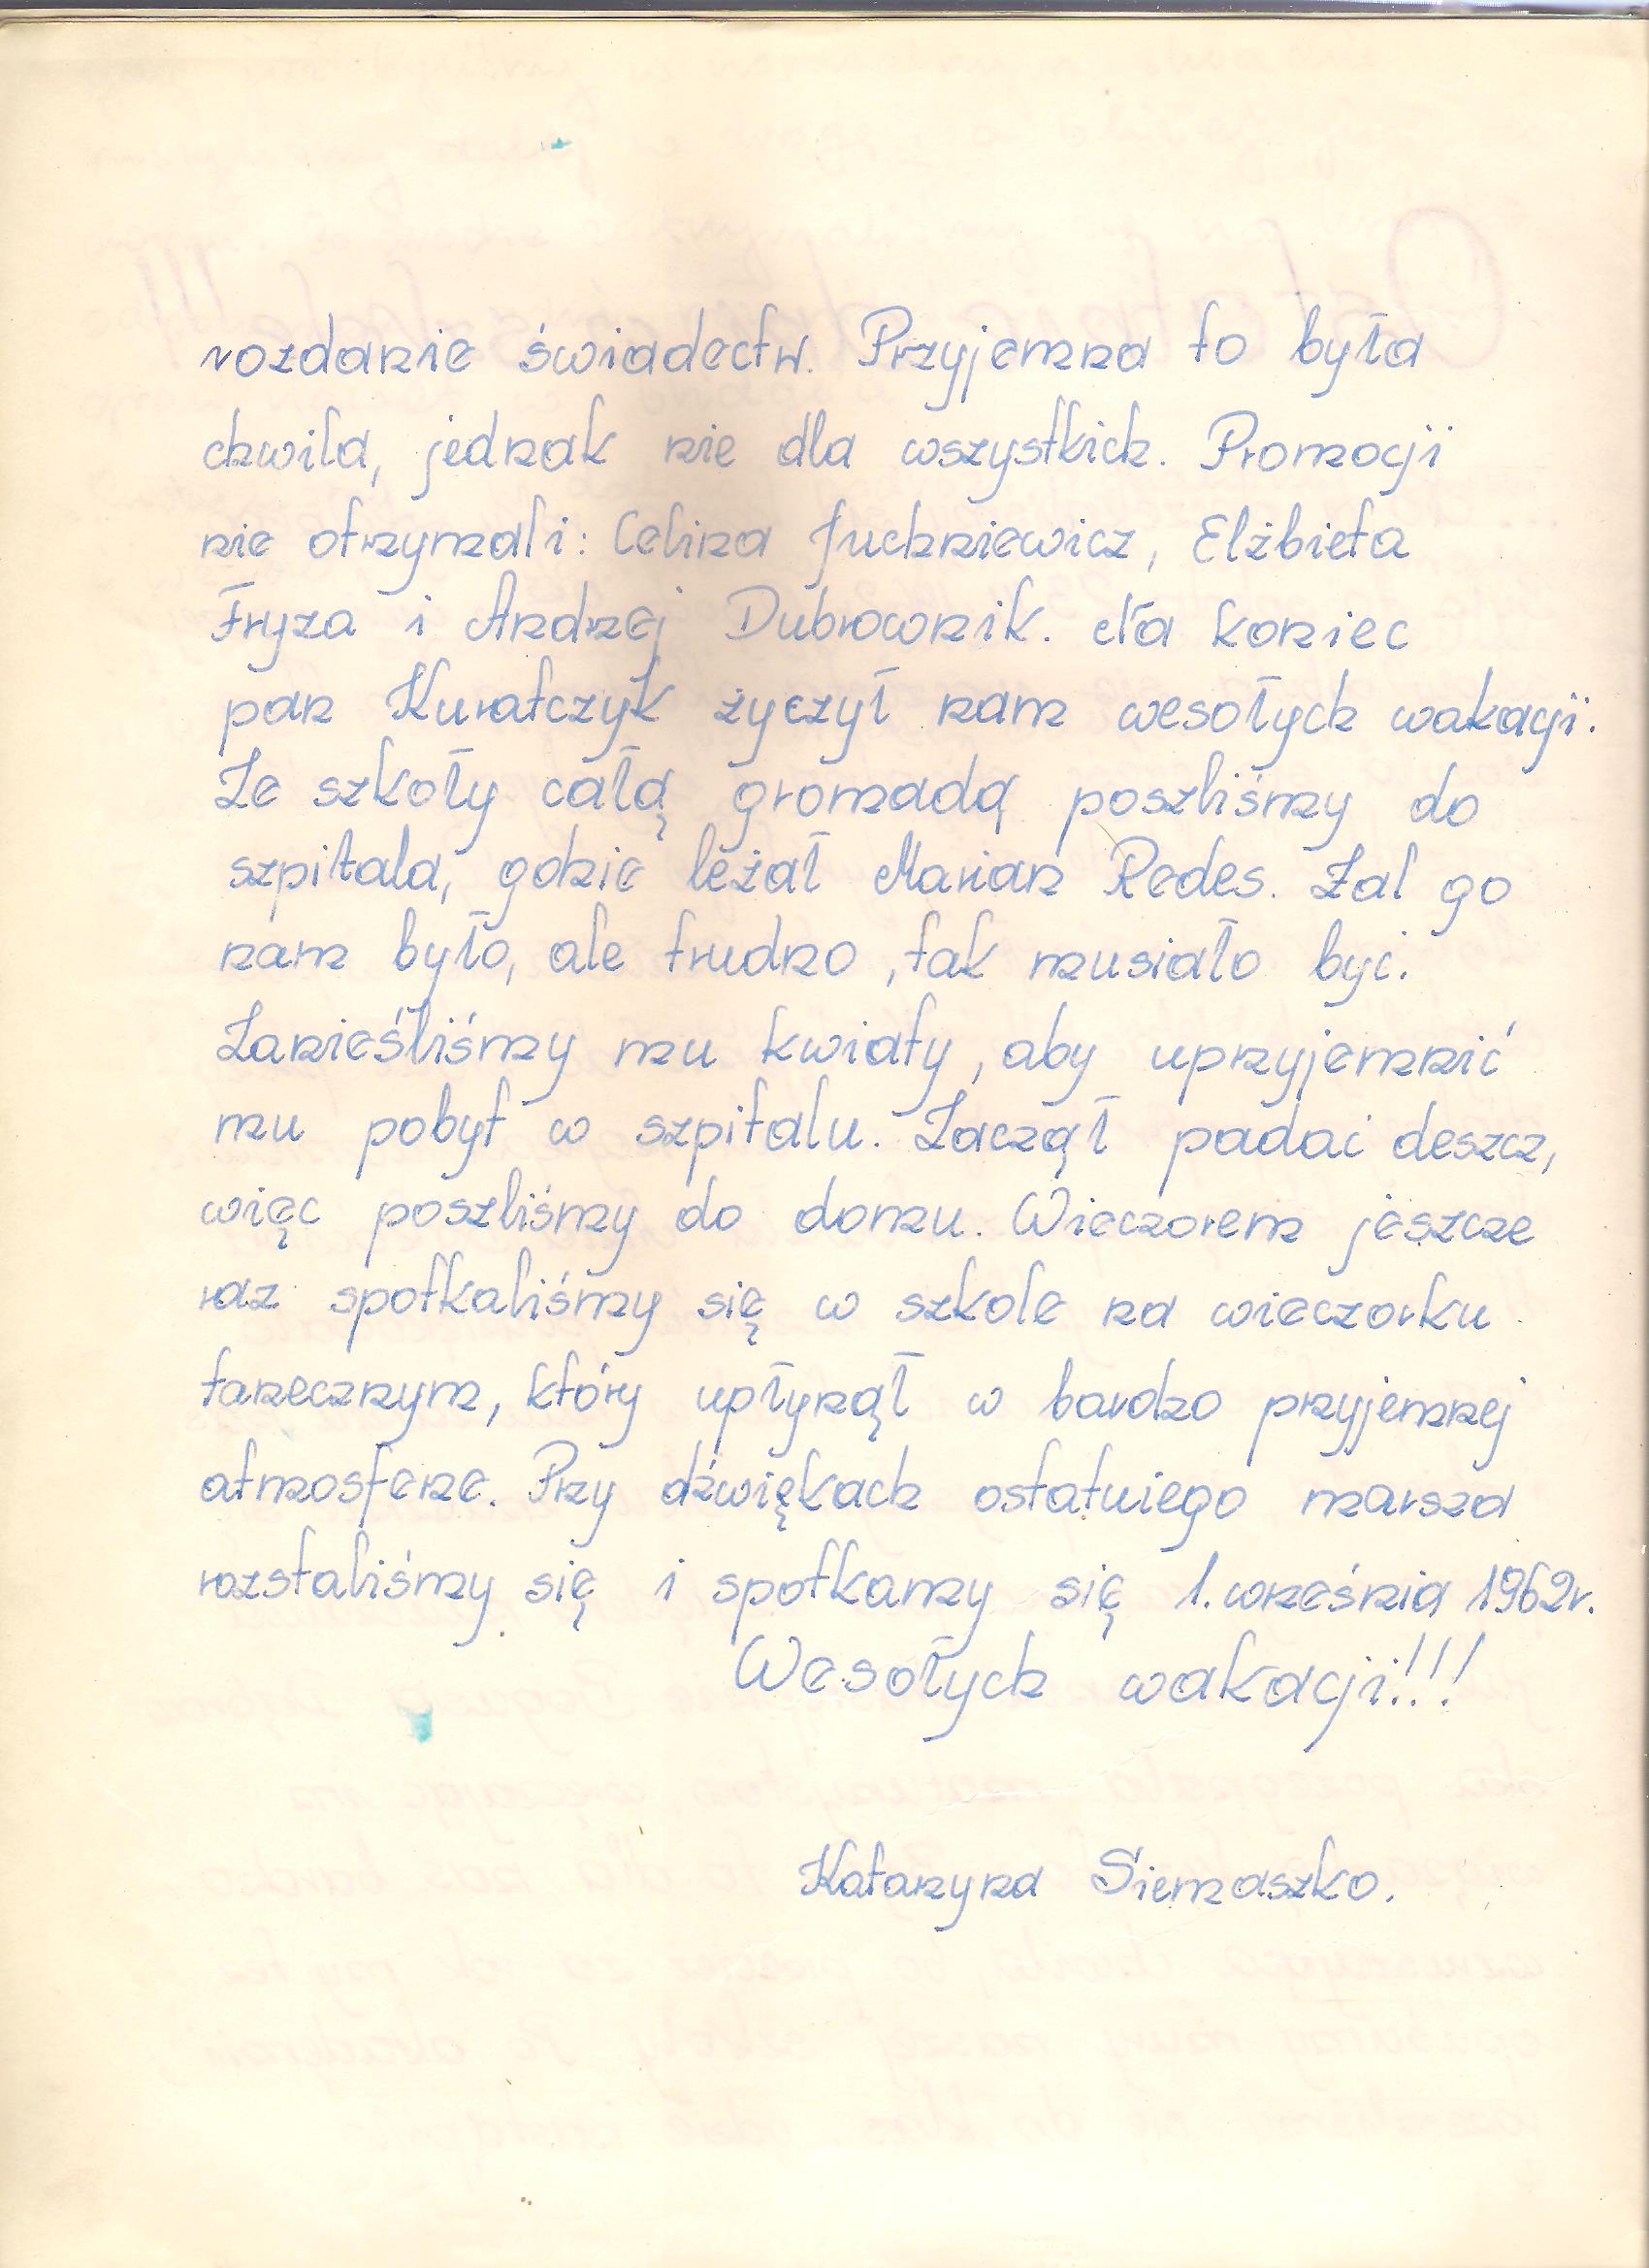 rozdanie świadectw. Przyjemna to była
chwila, jednak nie dla wszystkich. Promocji
nie otrzymali: Celina Juchniewicz, Elżbieta
Fryza i Andrzej Dubrownik. Na koniec
pan Kuratczyk życzył nam wesołych wakacji.
Ze szkoły całą gromadą poszliśmy do
szpitala, gdzie leżał Marian Redes. Żal go
nam było, ale trudno, tak musiało być.
Zanieśliśmy mu kwiaty, aby uprzyjemnić
mu pobyt w szpitalu. Zaczął padać deszcz,
więc poszliśmy do domu. Wieczorem jeszcze
raz spotkaliśmy się w szkole na wieczorku
tanecznym, który upłynął w bardzo przyjemnej
atmosferze. Przy dźwiękach ostatniego marsza
rozstaliśmy się i spotkamy się 1. września 1962r.
Wesołych wakacji!!!
Katarzyna Siemaszko.